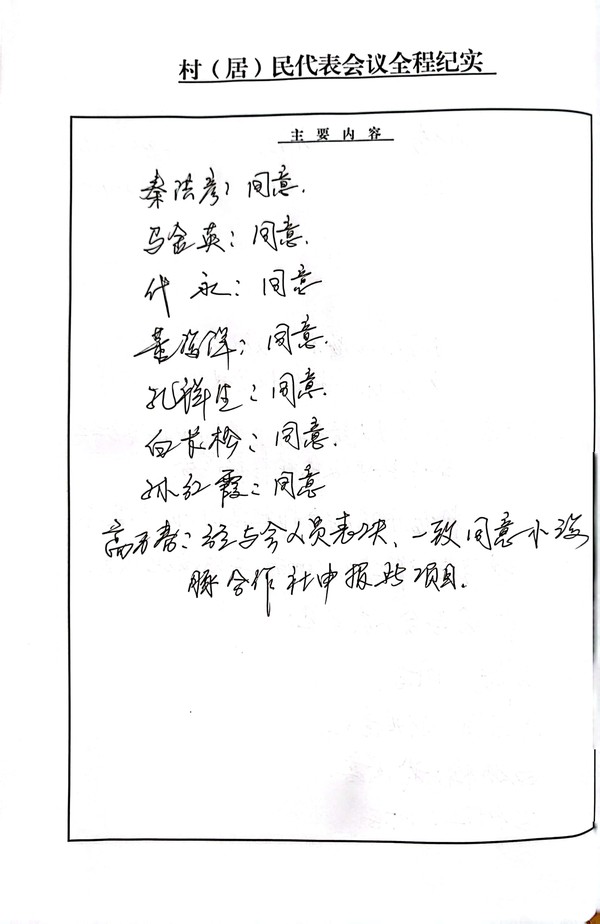 村（居）民代表会议全程纪实
主要内容
秦洪彦：同意.
马金英：同意.
代永：同意
董海洋：同意.
孔祥生：同意.
白长松：同意.
孙红霞：同意
高万春：经与会人员表决、一致同意小
合作社申报此项目.